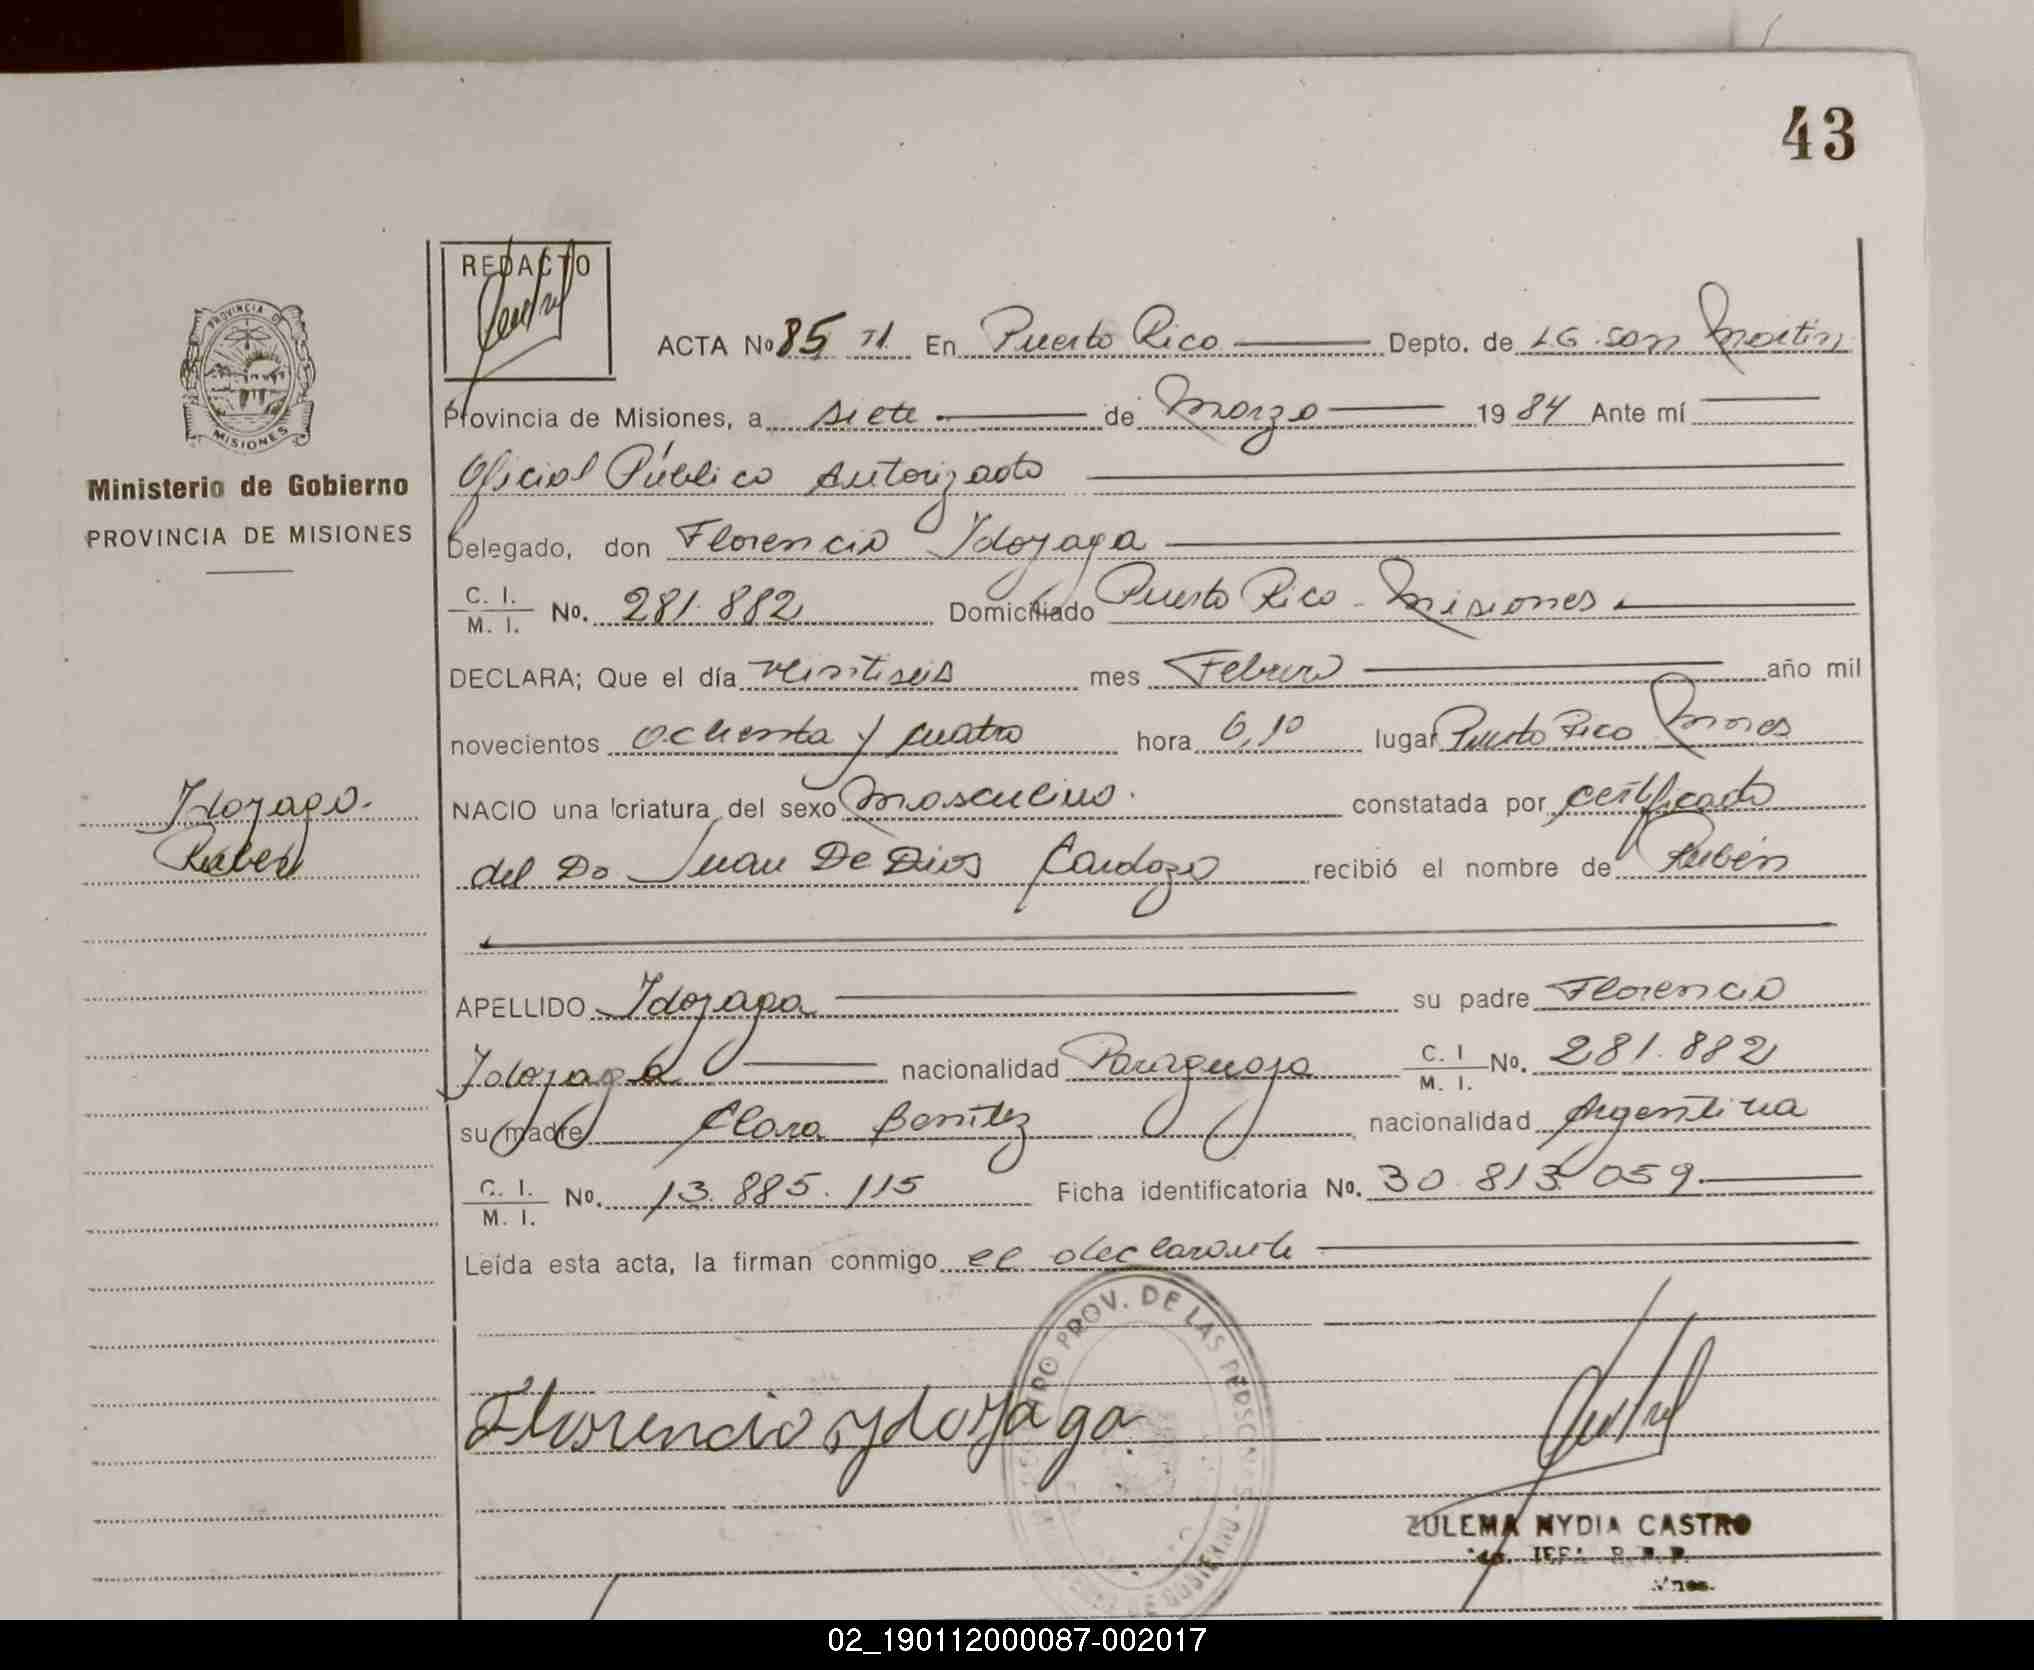 43
REDACTO
PROVINCIA DE
MISIONES
Ministerio de Gobierno
PROVINCIA DE MISIONES
ACTA No 85 En Puerto Rico Depto. de L.G. San Martín
Provincia de Misiones, a siete de Marzo 1984 Ante mí
Oficial Público Autorizado
Delegado, don Florencio Ydoyaga
C. I.
M. I. No. 281.882 Domiciliado Puerto Rico - Misiones
DECLARA; Que el día veintiseis mes Febrero año mil
novecientos ochenta y cuatro hora 6,10 lugar Puerto Rico Mnes
NACIO una criatura del sexo Masculino. constatada por certificado
del Do Juan De Dios Cardozo recibió el nombre de Rubén
Ydoyaga.
Rubén
APELLIDO Ydoyaga su padre Florencio
Ydoyaga nacionalidad Paraguaya C. I. M. I. No. 281.882
su madre Clara Benítez nacionalidad Argentina
C. I.
M. I. No. 13.885.115 Ficha identificatoria No. 30.813.059.
Leída esta acta, la firman conmigo el declarante
PROV. DE LAS PERSONAS
Florencio ydoyaga
ZULEMA NYDIA CASTRO
Mnes.
02_190112000087-002017